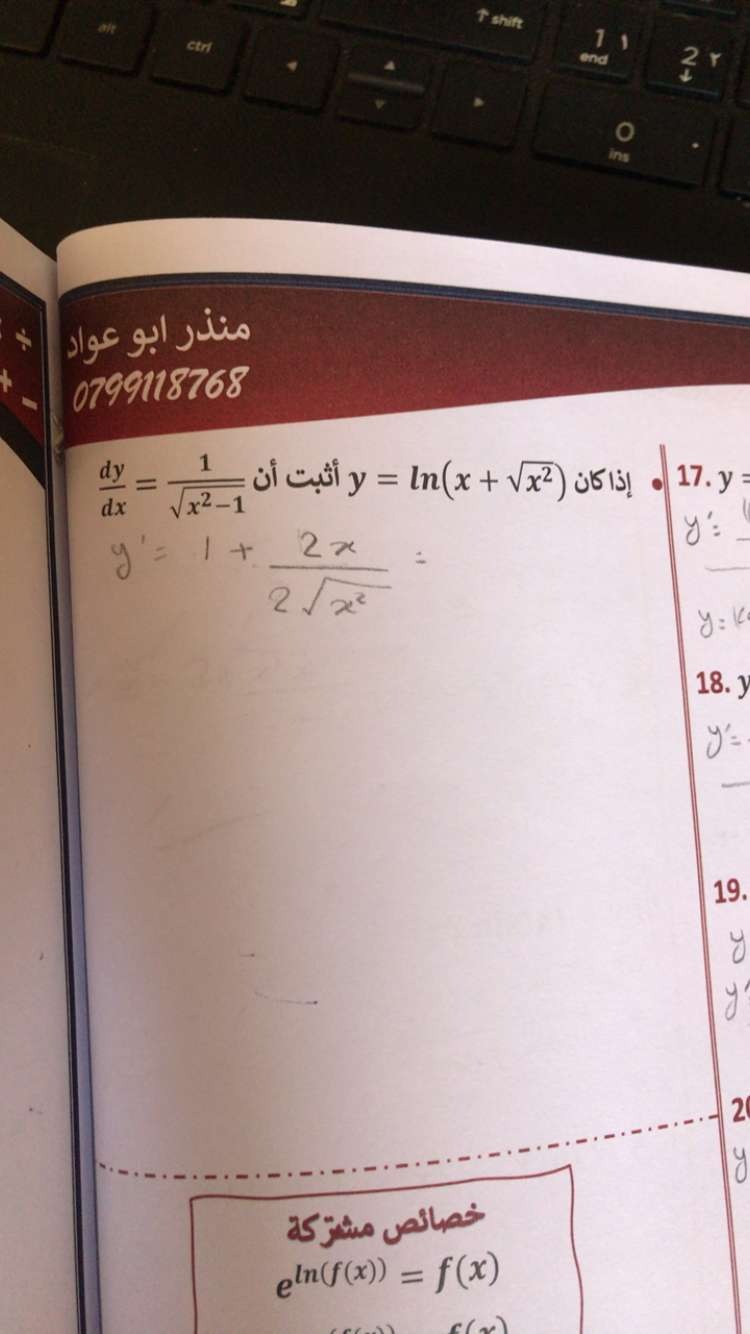 alt
ctrl
↑ shift
1 ١
end
2 ٢
↓
0
ins
.
÷
+
−
منذر ابو عواد
0799118768
إذا كان y = ln(x + √x²) أثبت أن dy/dx = 1/√x²−1
y' = 1 + 2x / 2√x² =
17. y =
y' =
y =
18. y
y' =
19.
y
y'
20
y
خصائص مشتركة
e^ln(f(x)) = f(x)
f(x)